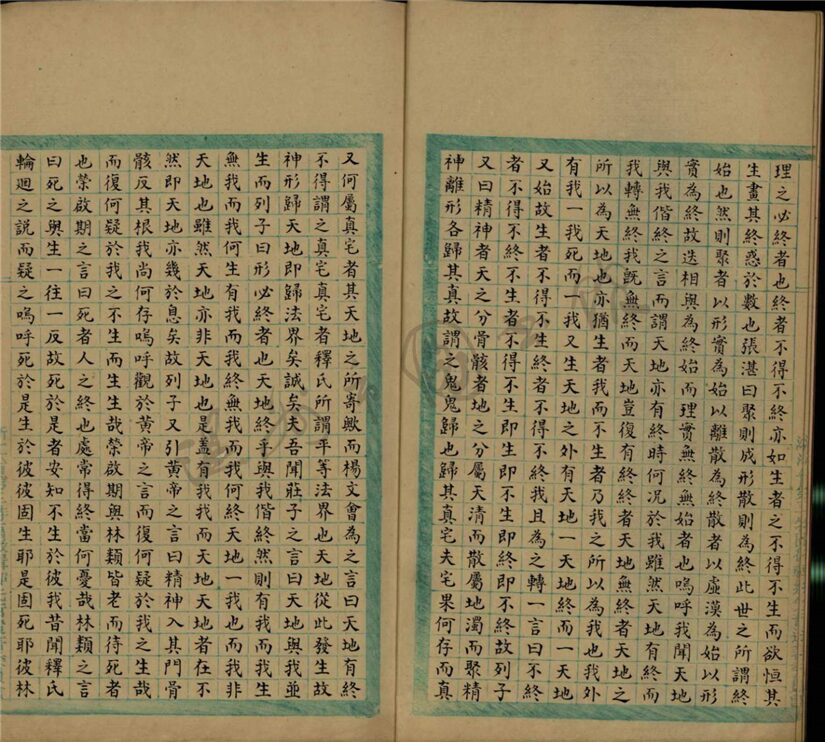 理之必終者也終者不得不終亦如生者之不得不生而欲恒其
生畫其終惑於數也張湛曰聚則成形散則為終此世之所謂終
始也然則聚者以形實為始以離散為終散者以虛漠為始以形
實為終故迭相與為終始而理實無終無始者也嗚呼我聞天地
與我偕終之言而謂天地亦有終時何況於我雖然天地有終而
我轉無終我旣無終而天地豈復有終終者天地無終者天地之
所以為天地也亦猶生者我而不生者乃我之所以為我也我外
有我一我死而一我又生天地之外有天地一天地終而一天地
又始故生者不得不生終者不得不終我且為之轉一言曰不終
者不得不終不生者不得不生即生即不生即終即不終故列子
又曰精神者天之分骨骸者地之分屬天清而散屬地濁而聚精
神離形各歸其真故謂之鬼鬼歸也歸其真宅夫宅果何存而真
又何屬真宅者其天地之所寄歟而楊文會為之言曰天地有終
不得謂之真宅真宅者釋氏所謂平等法界也天地從此發生故
神形歸天地即歸法界矣誠矣夫吾聞莊子之言曰天地與我並
生而列子曰形必終者也天地終乎與我偕終然則有我而我生
無我而我何生有我而我終無我而我何終天地一我也而我非
天地也雖然天地亦非天地也是蓋有我我而天地天地者在不
然即天地亦幾於息矣故列子又引黃帝之言曰精神入其門骨
骸反其根我尚何存嗚呼觀於黃帝之言而復何疑於我之生哉
而復何疑於我之不生而生生哉榮啟期與林類皆老而待死者
也榮啟期之言曰死者人之終也處常得終當何憂哉林類之言
曰死之與生一往一反故死於是者安知不生於彼我昔聞釋氏
輪迴之說而疑之嗚呼死於是生於彼彼固生耶是固死耶彼林